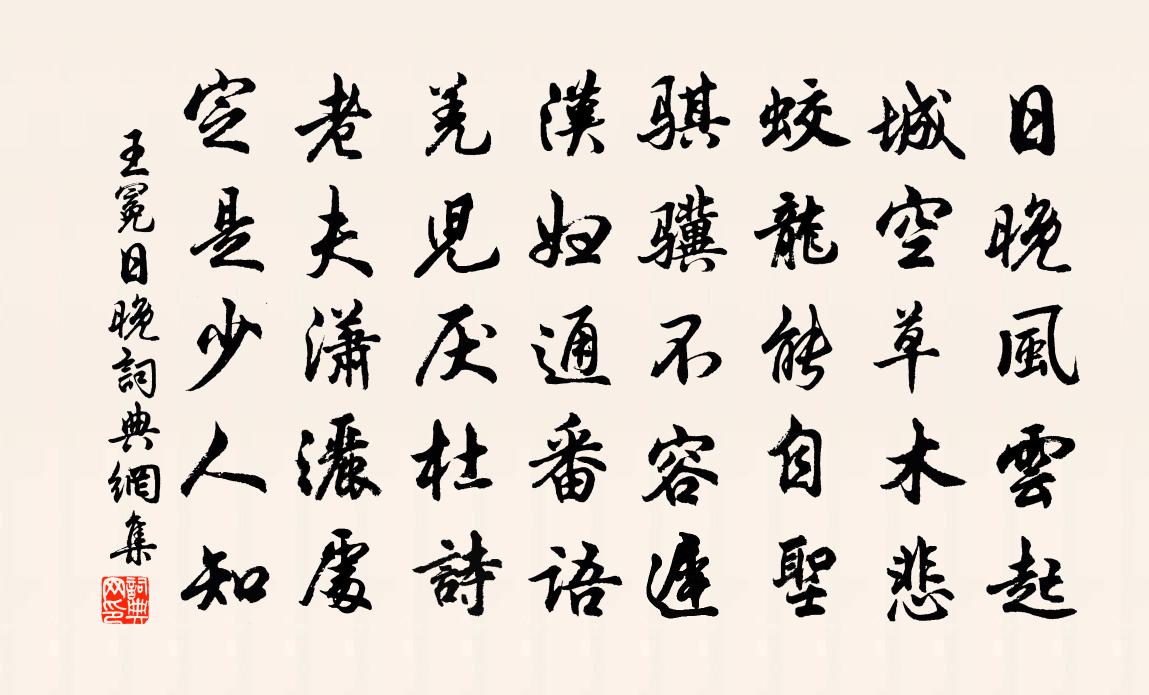 日晚風雲起
城空草木悲
蛟龍能自聖
騏驥不容遲
漢婦通番語
羌兒厌杜詩
老夫瀟灑處
定是少人知
王冕日晚詞典網集
詞典